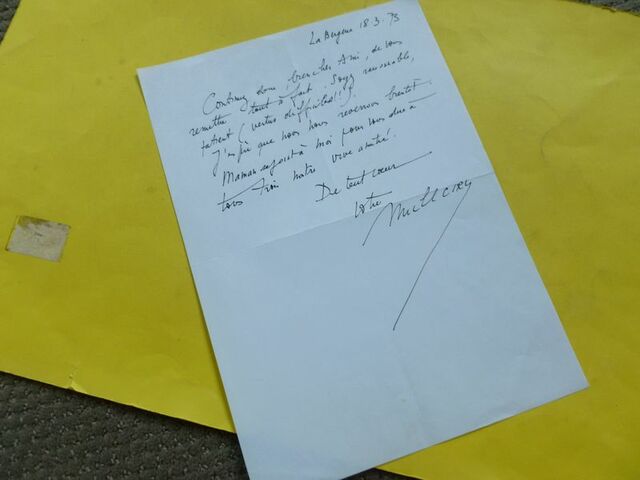 La Bergerie 18.3.73
Continuez donc, bien cher Ami, de vous
remettre tout à fait. Soyez raisonnable,
patient (vertus difficiles!!).
J'espère que nous nous reverrons bientôt.
Maman se joint à moi pour vous dire à
tous trois notre vive amitié.
De tout cœur
votre